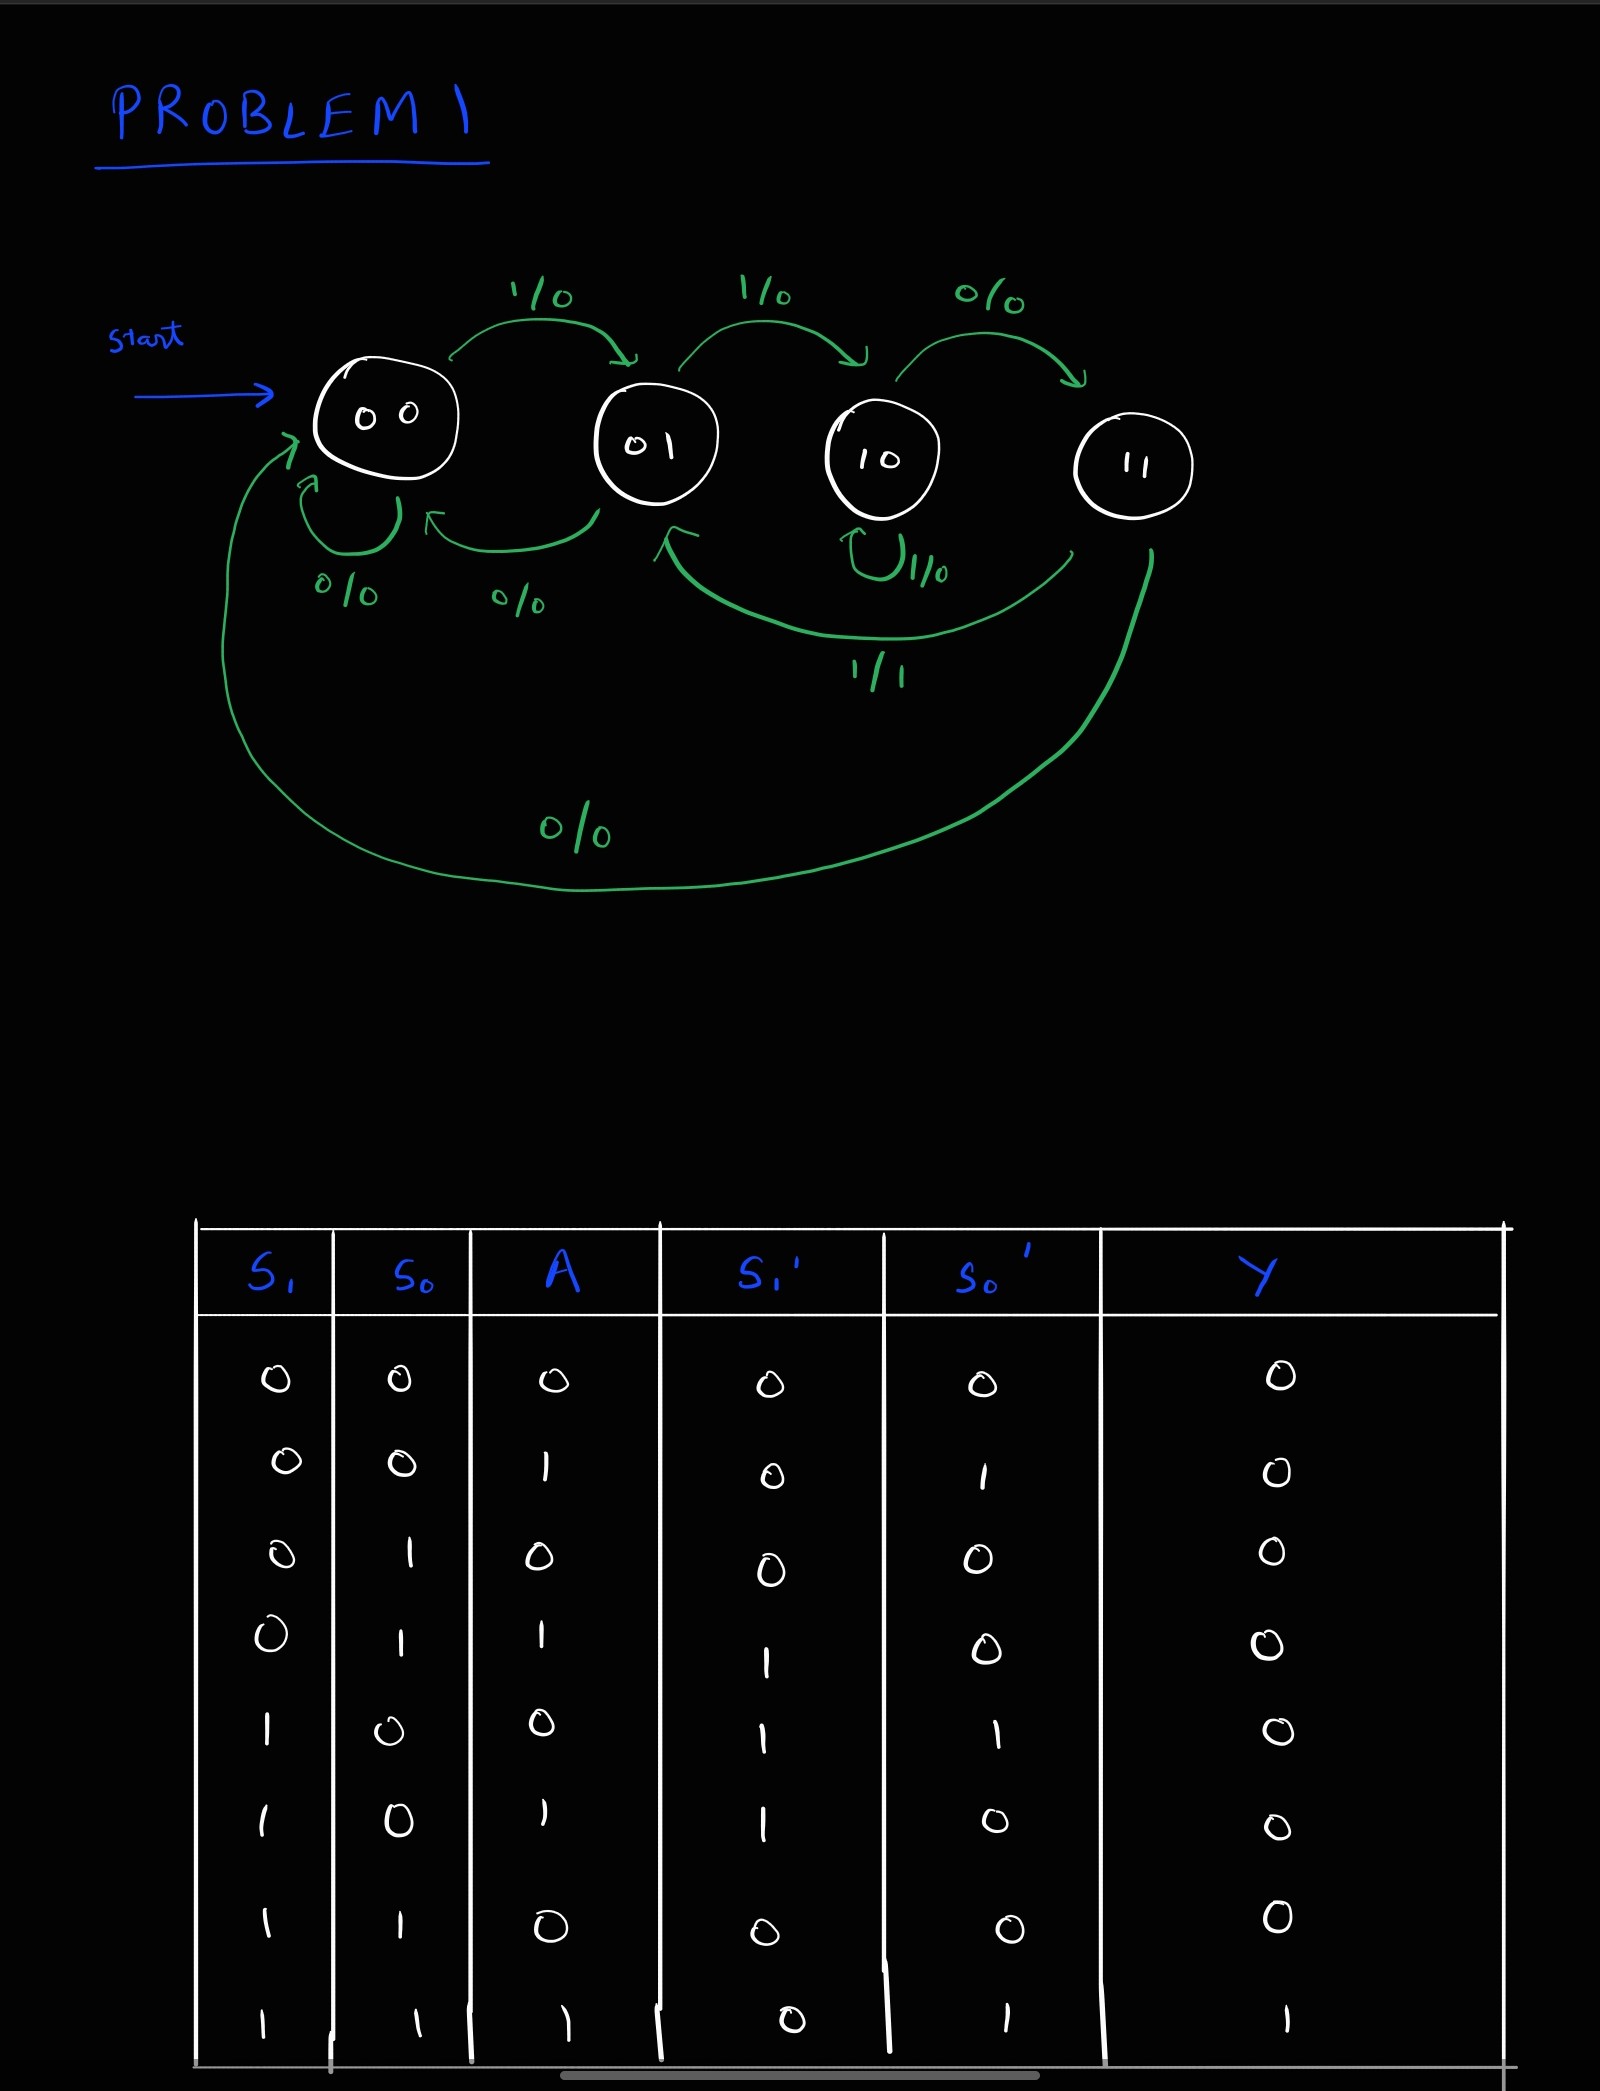 PROBLEM 1
1/0 1/0 0/0
start
00 01 10 11
0/0 0/0 1/0
1/1
0/0
S₁ S₀ A S₁' S₀' Y
0 0 0 0 0 0
0 0 1 0 1 0
0 1 0 0 0 0
0 1 1 1 0 0
1 0 0 1 1 0
1 0 1 1 0 0
1 1 0 0 0 0
1 1 1 0 1 1